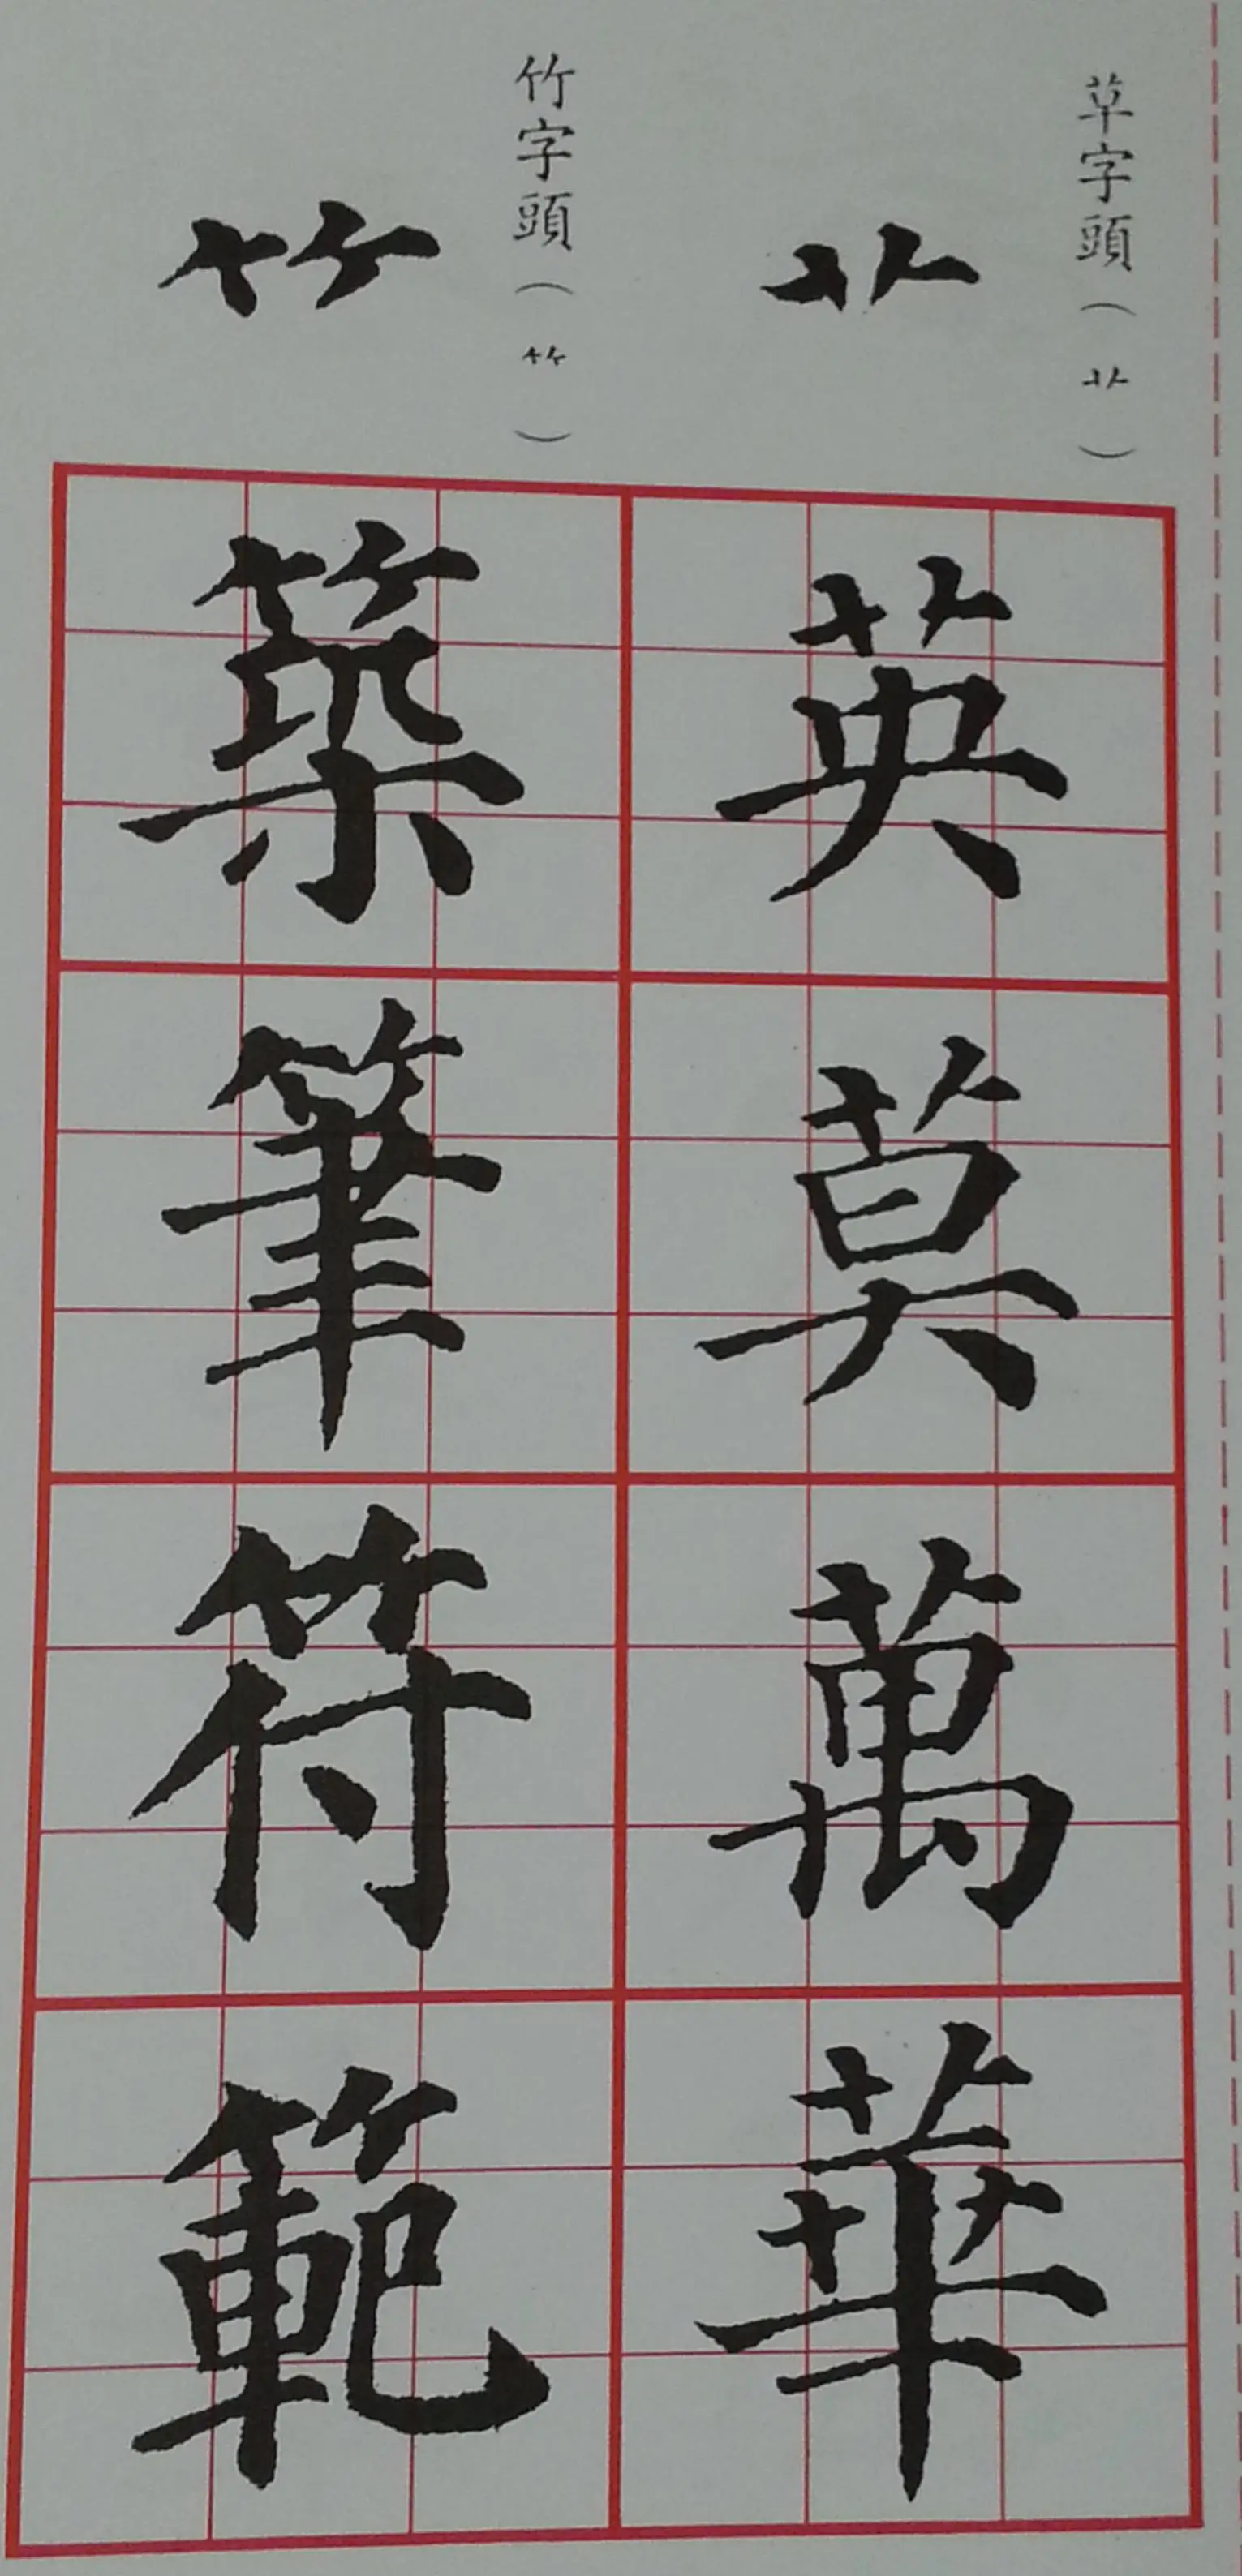 草字頭（艹）
艹
英
莫
萬
華
竹字頭（⺮）
⺮
築
筆
符
範